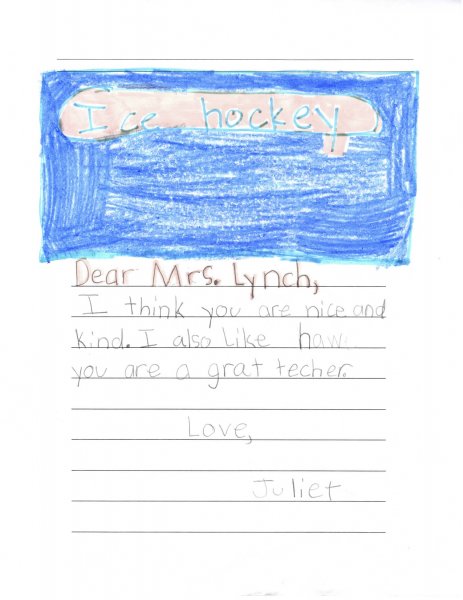 Ice hockey
Dear Mrs. Lynch,
I think you are nice and
kind. I also Like haw
you are a grat techer.
Love,
Juliet